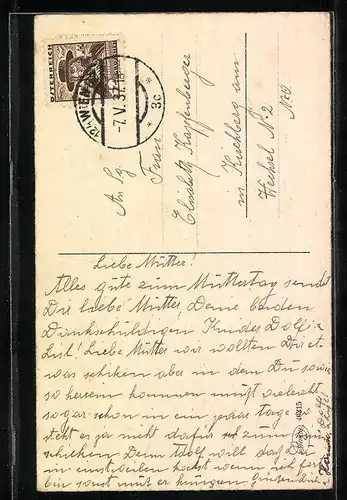 ÖSTERREICH
WIEN
-7.V.37.
* 3c *
An Sg.
Frau
Elisabeth Kapfenberger
in Kirchberg am
Wechsel No 2
N.Ö
Liebe Mutter!
Alles gute zum Muttertag sendet
Dir liebe Mutter, Deine beiden
Dankschuldigen Kinder Dolfi u
List! Liebe Mutter wir wollten Dir et
was schicken aber in dem Du sowie
so herein kommen mußt vieleicht
sogar schon in ein paar tage
steht es ja nicht dafür sch zum
schicken Denn Adolf will daß Du
in einstweilen kochst wenn ich fort
bin sonst muß er hungern